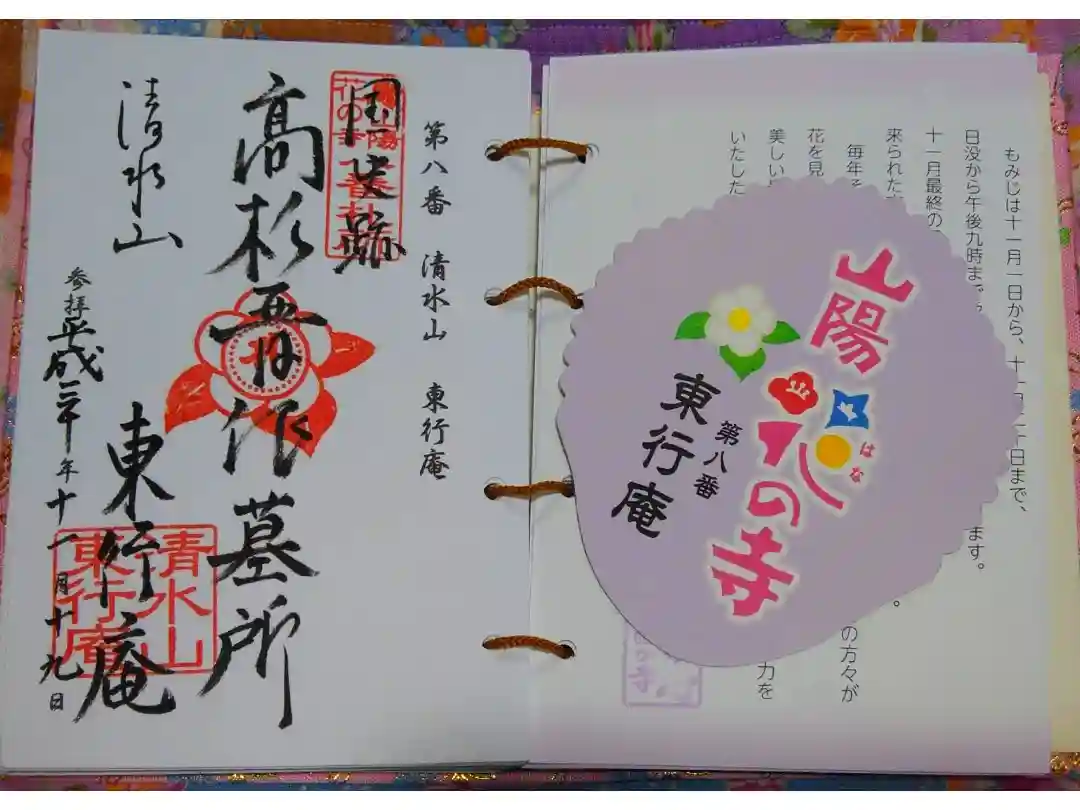 もみじは十一月一日から、
十日まで、
日没から午後九時まで
ます。
十一月最終の
来られた
毎年
の方々が
花を見
美しい
力を
いたした
山陽
花の寺
はな
第八番
東行庵
第八番 清水山 東行庵
国史跡
花の寺
高杉晋作墓所
清水山
東行庵
清水山
東行庵
参拝 平成三十年十一月十九日